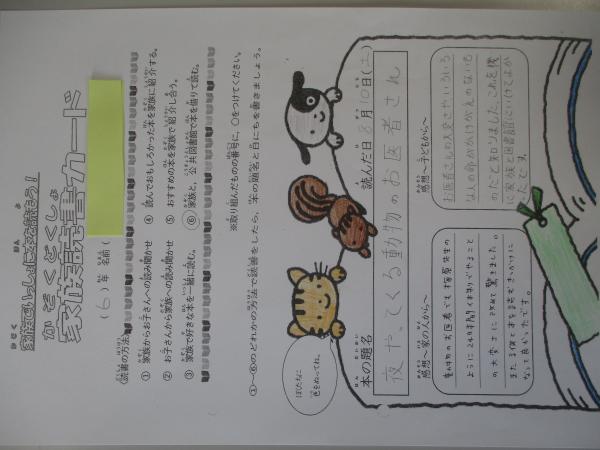 家族でいっしょに本を読もう！
かぞくどくしょ
家族読書カード
（６）年 名前（
《読書の方法》
① 家族からお子さんへの読み聞かせ
② お子さんから家族への読み聞かせ
③ 家族で好きな本を一緒に読む。
④ 読んでおもしろかった本を家族に紹介する。
⑤ おすすめの本を家族で紹介し合う。
⑥ 家族と、公共図書館で本を借りて読む。
※取り組んだものの番号に、○をつけてください。
①～⑥のどれかの方法で読書をしたら、本の題名と日にちを書きましょう。
ぼくたちに
色をぬってね。
本の題名
夜やってくる動物のお医者さん
読んだ日 8月10日（土）
感想～家の人から～
動物のお医者でも塚原先生の
ように24時間体制でやること
の大変さに改めて驚きました。
また、本を読むきっかけに
なって良かったです。
感想～子どもから～
お医者さんの大変さやいろいろ
な人の命がかけがえのないも
のだと知りました。これを機
に家族と図書館にいけてよか
ったです。